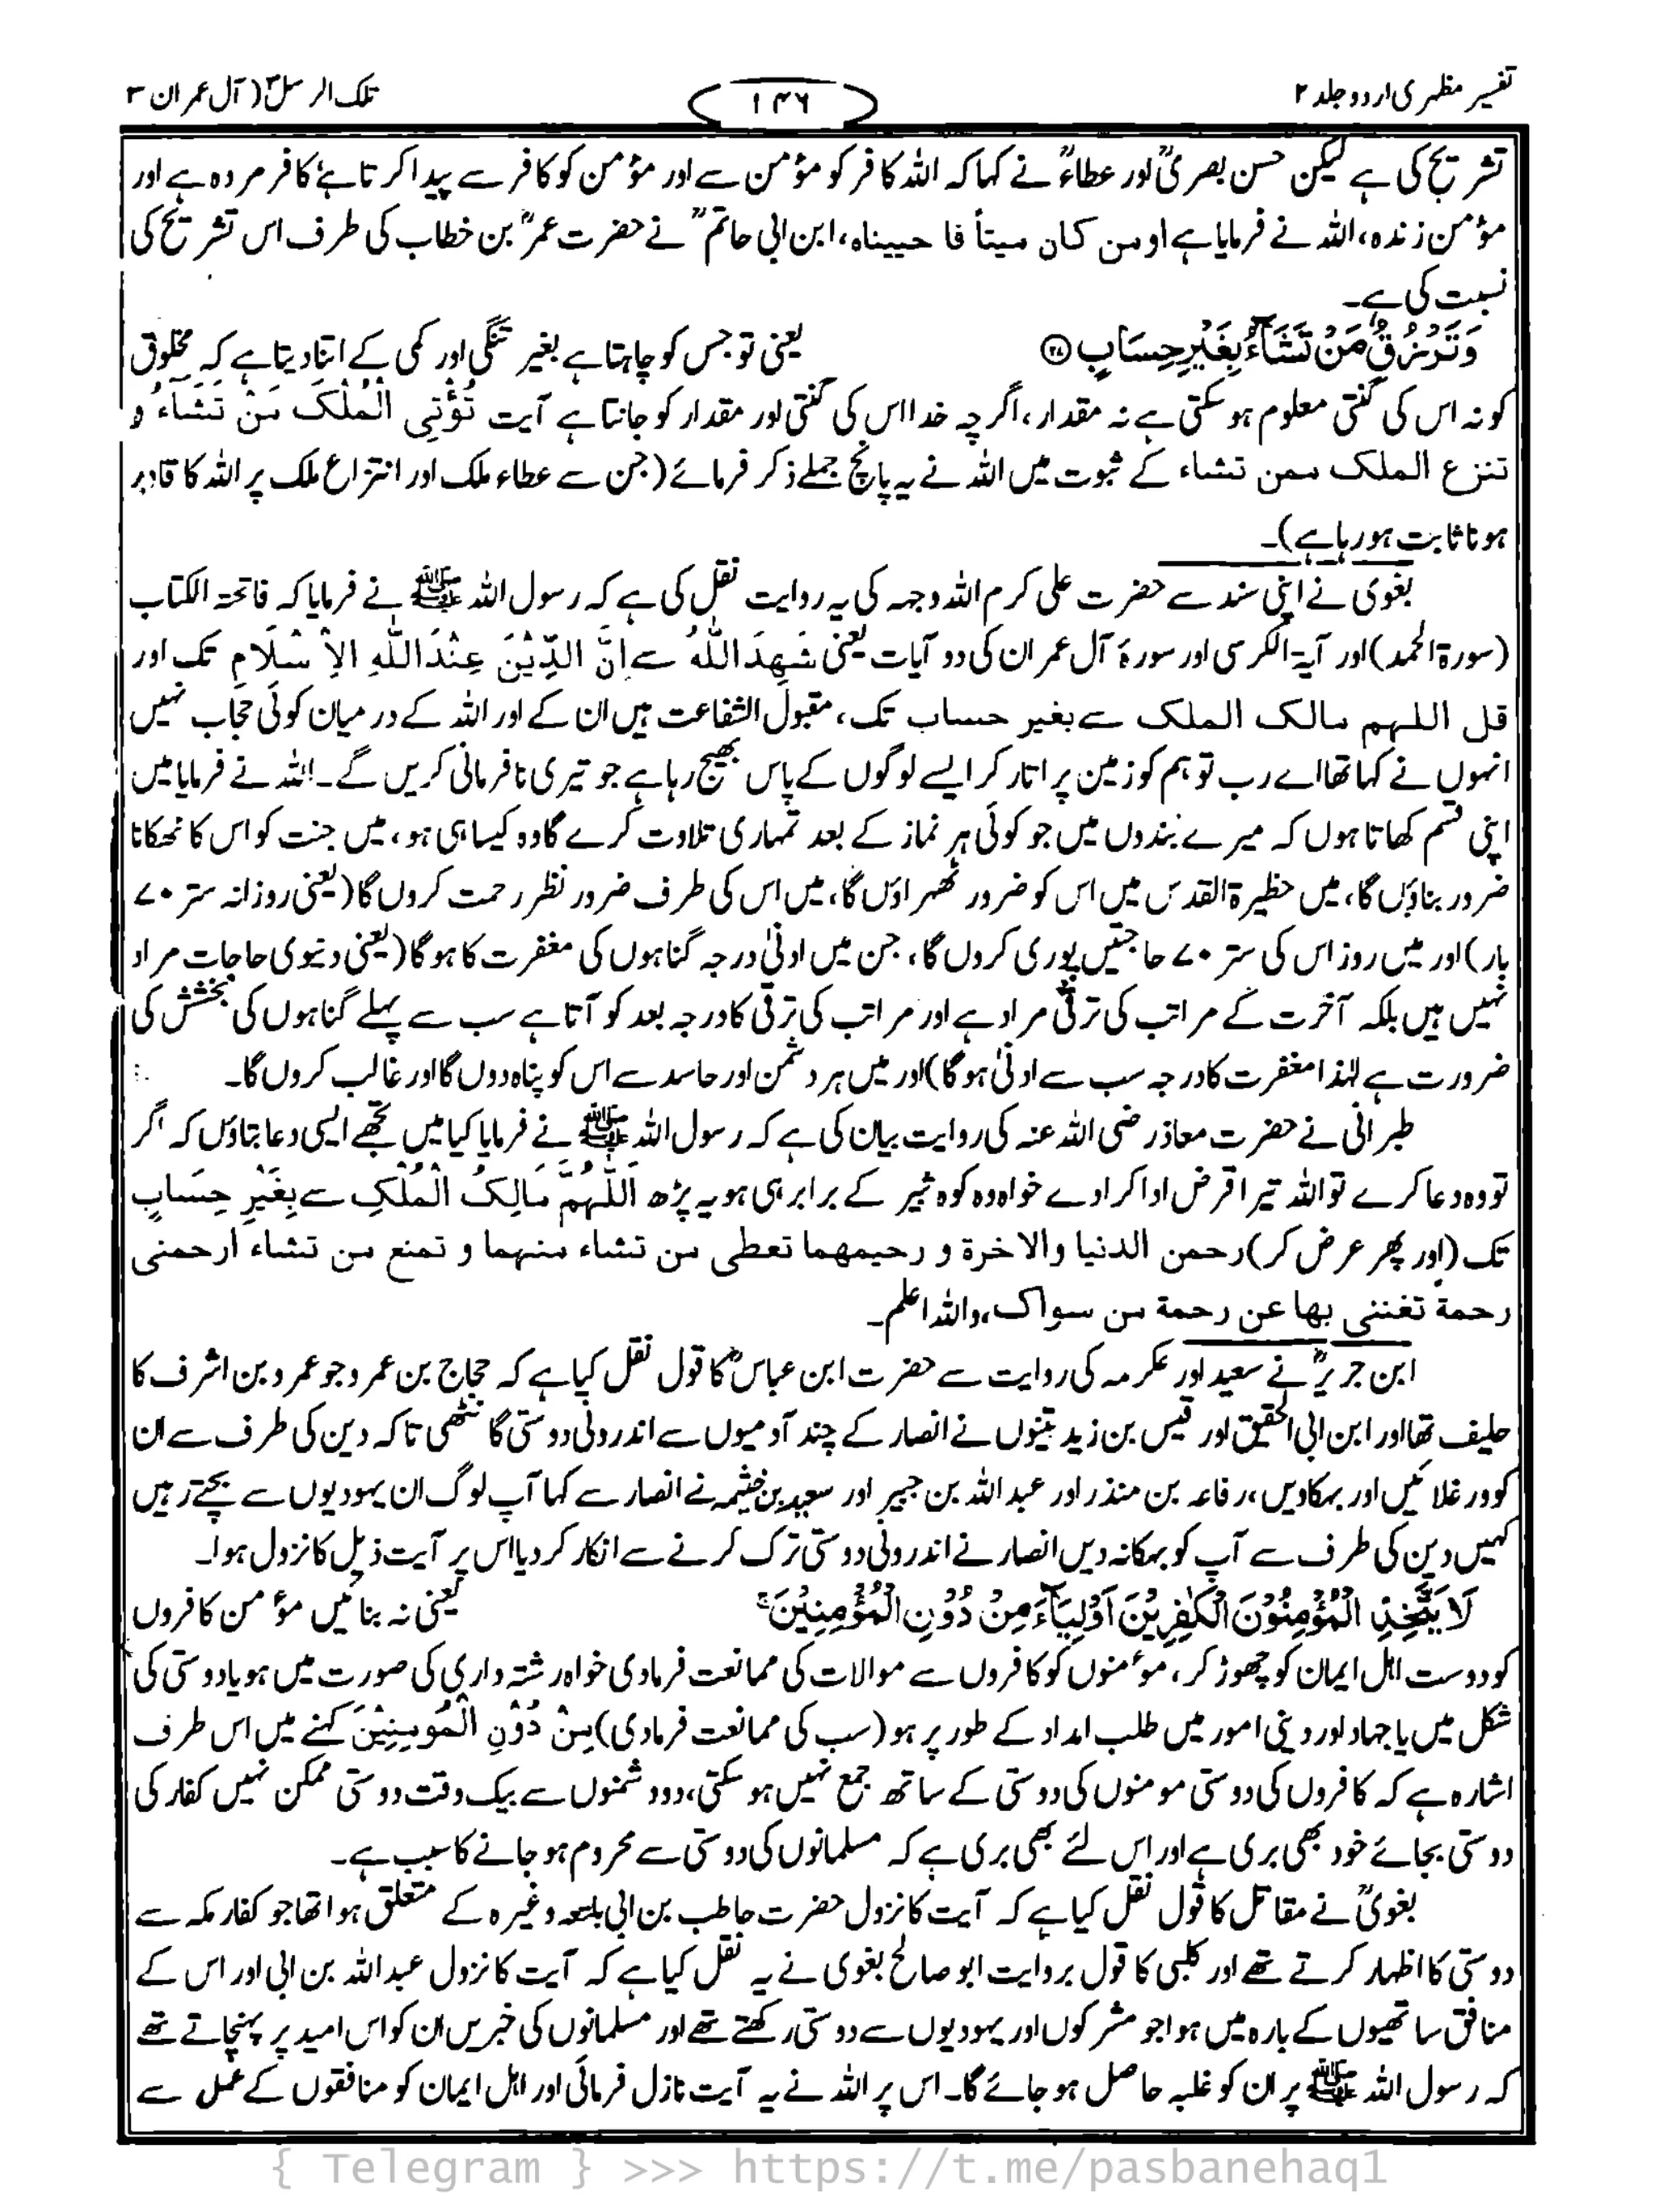 تفسیر مظہری اردو جلد ۲
۱۴۶
تلک الرسل ۳ (آل عمران ۳
تشریح کی ہے لیکن حسن بصریؒ اور عطاءؒ نے کہا کہ اللہ کافر کو مؤمن سے اور مؤمن کو کافر سے پیدا کرتا ہے کافر مردہ ہے اور
مؤمن زندہ، اللہ نے فرمایا ہے اومن کان میتاً فا حییناہ، ابن ابی حاتمؒ نے حضرت عمرؓ بن خطاب کی طرف اس تشریح کی
نسبت کی ہے۔
وَتَرْزُقُ مَنْ تَشَآءُ بِغَيْرِ حِسَابٍ ۲۷ یعنی تو جس کو چاہتا ہے بغیر تنگی اور کمی کے اتنا دیتا ہے کہ مخلوق
کو نہ اس کی گنتی معلوم ہو سکتی ہے نہ مقدار، اگرچہ خدا اس کی گنتی اور مقدار کو جانتا ہے آیت تُؤْتِی الْمُلْکَ مَنْ تَشَاءُ و
تنزع الملک ممن تشاء کے ثبوت میں اللہ نے یہ پانچ جملے ذکر فرمائے (جن سے عطاء ملک اور انتزاع ملک پر اللہ کا قادر
ہونا ثابت ہو رہا ہے)۔
بغوی نے اپنی سند سے حضرت علی کرم اللہ وجہہ کی یہ روایت نقل کی ہے کہ رسول اللہ ﷺ نے فرمایا کہ فاتحۃ الکتاب
(سورۃ الحمد) اور آیۃ الکرسی اور سورۂ آل عمران کی دو آیات یعنی شَهِدَ اللّٰهُ سے اِنَّ الدِّیْنَ عِنْدَ اللّٰهِ الاِسْلَامِ تک اور
قل اللہم مالک الملک سے بغیر حساب تک، مقبول الشفاعت ہیں ان کے اور اللہ کے درمیان کوئی حجاب نہیں
انہوں نے کہا تھا اے رب تو ہم کو زمین پر اتار کر ایسے لوگوں کے پاس بھیج رہا ہے جو تیری نافرمانی کریں گے۔ اللہ نے فرمایا میں
اپنی قسم کھاتا ہوں کہ میرے بندوں میں جو کوئی ہر نماز کے بعد تمہاری تلاوت کرے گا وہ کیسا ہی ہو، میں جنت کو اس کا ٹھکانا
ضرور بناؤں گا، میں حظیرۃ القدس میں اس کو ضرور ٹھہراؤں گا، میں اس کی طرف ضرور نظر رحمت کروں گا (یعنی روزانہ ستر ۷۰
بار) اور میں روز اس کی ستر ۷۰ حاجتیں پوری کروں گا، جن میں ادنیٰ درجہ گناہوں کی مغفرت کا ہوگا (یعنی دنیوی حاجات مراد
نہیں ہیں بلکہ آخرت کے مراتب کی ترقی مراد ہے اور مراتب کی ترقی کا درجہ بعد کو آتا ہے سب سے پہلے گناہوں کی بخشش کی
ضرورت ہے لہٰذا مغفرت کا درجہ سب سے ادنیٰ ہوگا) اور میں ہر دشمن اور حاسد سے اس کو پناہ دوں گا اور غالب کروں گا۔
طبرانی نے حضرت معاذ رضی اللہ عنہ کی روایت بیان کی ہے کہ رسول اللہ ﷺ نے فرمایا کیا میں تجھے ایسی دعا بتاؤں کہ اگر
تو وہ دعا کرے تو اللہ تیرا قرض ادا کرا دے خواہ وہ کوہ ثبیر کے برابر ہی ہو یہ پڑھ اَللّٰهُمَّ مَالِکَ الْمُلْکِ سے بِغَیْرِ حِسَابٍ
تک (اور پھر عرض کر) رحمن الدنیا والاخرة و رحیمهما تعطی من تشاء منہما و تمنع من تشاء ارحمنی
رحمة تغننی بها عن رحمة من سواک، واللہ اعلم۔
ابن جریرؒ نے سعید اور عکرمہ کی روایت سے حضرت ابن عباسؓ کا قول نقل کیا ہے کہ حجاج بن عمرو جو عمرو بن اشرف کا
حلیف تھا اور ابن ابی الحقیق اور قیس بن زید تینوں نے انصار کے چند آدمیوں سے اندرونی دوستی گانٹھی تاکہ دین کی طرف سے ان
کو ورغلائیں اور بہکادیں، رفاعہ بن منذر اور عبداللہ بن جبیر اور سعید بن خثیمہ نے انصار سے کہا آپ لوگ ان یہودیوں سے بچتے رہیں
کہیں دین کی طرف سے آپ کو بہکا نہ دیں انصار نے اندرونی دوستی ترک کرنے سے انکار کر دیا اس پر آیت ذیل کا نزول ہوا۔
لَا يَتَّخِذِ الْمُؤْمِنُوْنَ الْكٰفِرِيْنَ اَوْلِيَآءَ مِنْ دُوْنِ الْمُؤْمِنِيْنَ ۚ یعنی نہ بنائیں مؤمن کافروں
کو دوست اہل ایمان کو چھوڑ کر، مومنوں کو کافروں سے موالات کی ممانعت فرمادی خواہ رشتہ داری کی صورت میں ہو یا دوستی کی
شکل میں یا جہاد اور دینی امور میں طلب امداد کے طور پر ہو (سب کی ممانعت فرمادی) مِنْ دُوْنِ الْمُوْمِنِیْنَ کہنے میں اس طرف
اشارہ ہے کہ کافروں کی دوستی مومنوں کی دوستی کے ساتھ جمع نہیں ہو سکتی، دو دشمنوں سے بیک وقت دوستی ممکن نہیں کفار کی
دوستی بجائے خود بھی بری ہے اور اس لئے بھی بری ہے کہ مسلمانوں کی دوستی سے محروم ہو جانے کا سبب ہے۔
بغویؒ نے مقاتل کا قول نقل کیا ہے کہ آیت کا نزول حضرت حاطب بن ابی بلتعہ وغیرہ کے متعلق ہوا تھا جو کفار مکہ سے
دوستی کا اظہار کرتے تھے اور کلبی کا قول بروایت ابو صالح بغوی نے یہ نقل کیا ہے کہ آیت کا نزول عبداللہ بن ابی اور اس کے
منافق ساتھیوں کے بارہ میں ہوا جو مشرکوں اور یہودیوں سے دوستی رکھتے تھے اور مسلمانوں کی خبریں ان کو اس امید پر پہنچاتے تھے
کہ رسول اللہ ﷺ پر ان کو غلبہ حاصل ہو جائے گا۔ اس پر اللہ نے یہ آیت نازل فرمائی اور اہل ایمان کو منافقوں کے عمل سے
{ Telegram } >>> https://t.me/pasbanehaq1